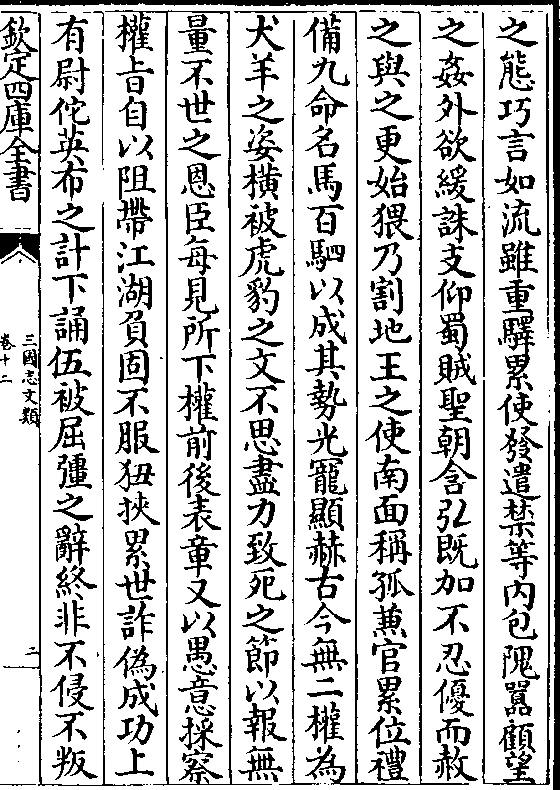 之態巧言如流雖重驛累使發遣禁等内包隗囂顧望
之姦外欲緩誅支仰蜀賊聖朝含弘既加不忍優而赦
之與之更始猥乃割地王之使南面稱孤兼官累位禮
備九命名馬百駟以成其勢光寵顯赫古今無二權為
犬羊之姿横被虎豹之文不思盡力致死之節以報無
量不世之恩臣每見所下權前後表章又以愚意採察
權旨自以阻帶江湖負固不服狃挾累世詐偽成功上
有尉佗英布之計下誦伍被屈彊之辭終非不侵不叛
欽定四庫全書
三國志文類
卷十二
二